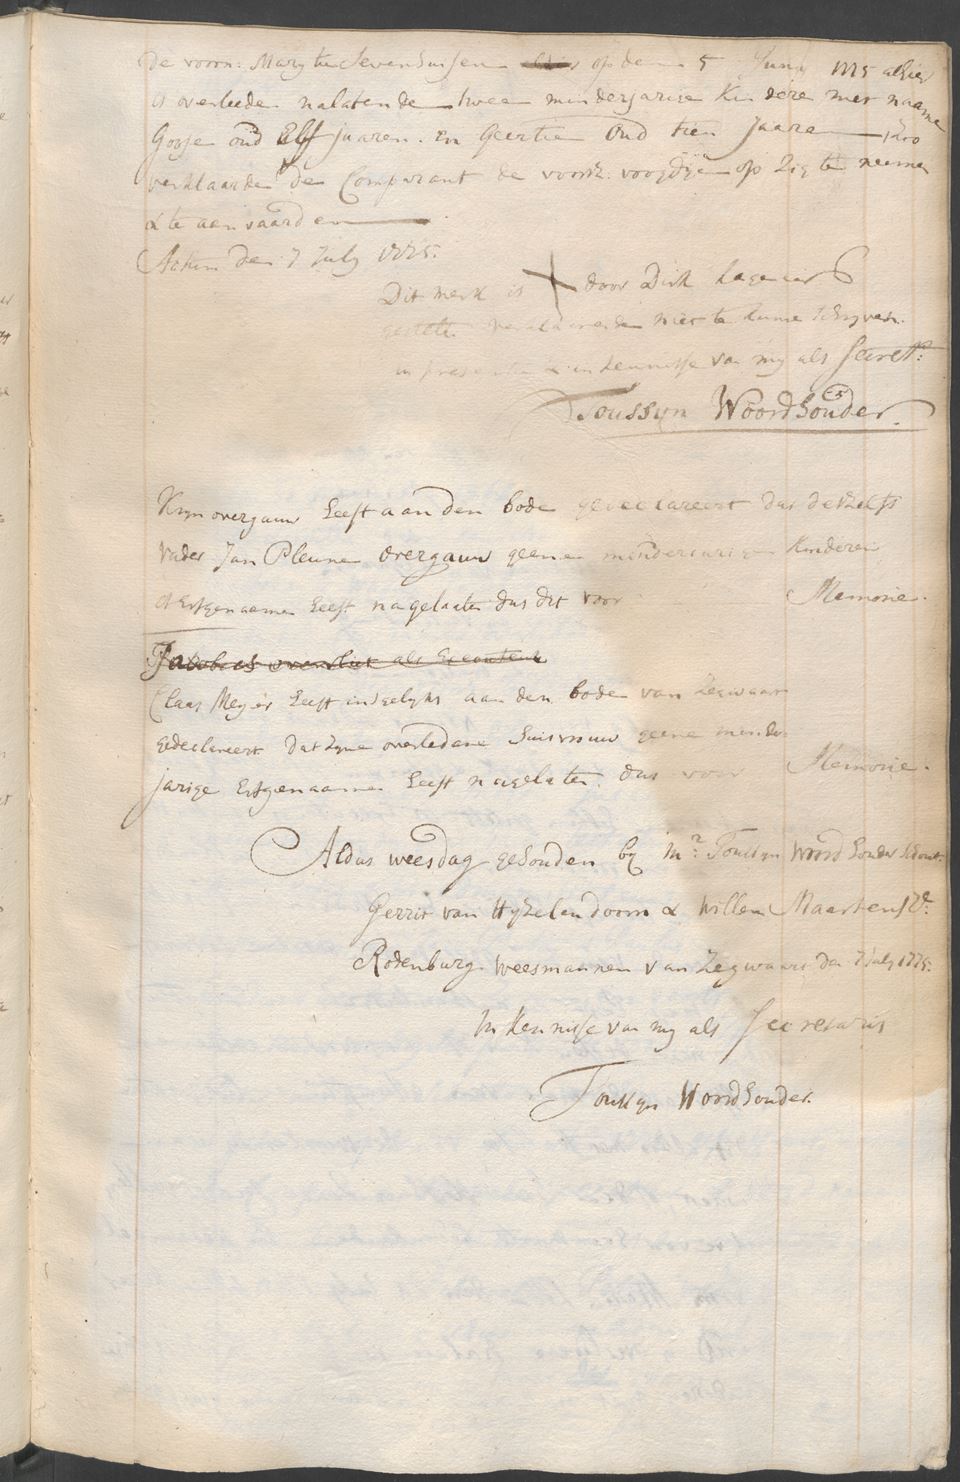 de voorn: Marytie Sevenhuisen op den 5 Juny 1775 alhier
is overleeden nalatende twee minderjarige Kindere met naame
Goosje oud Elf jaaren. en Geertie oud tien Jaare zoo
verklaarde de Comparant de voorsz: voogdije op zig te neemen
& te aanvaarden
Actum den 7 July 1775.
Dit merk is X door Dirk Lagewaard
gestelt. verklaarende niet te kunne schryven.
in presentie & in kennisse van my als Secret:
Toussyn Woordhouder.
Kryn overgauw heeft aan den bode gedeclareert dat deszelfs
vader Jan Pleune Overgauw geene minderjarige Kinderen
of Erfgenaamen heeft nagelaten dus dit voor Memorie.
Claas Meyer heeft insgelyks aan den bode van Zegwaart
gedeclareert dat zyne overledene huisvrouw geene minder
jarige Erfgenaamen heeft nagelaten. dus voor Memorie.
Aldus weesdag gehouden by Mr. Toussyn Woordhouder Schout.
Gerrit van Hyzelendoorn & Willem Maartensz.
Rodenburg weesmannen van Zegwaart den 7 July 1775.
In kennisse van my als Secretaris
Toussyn Woordhouder.